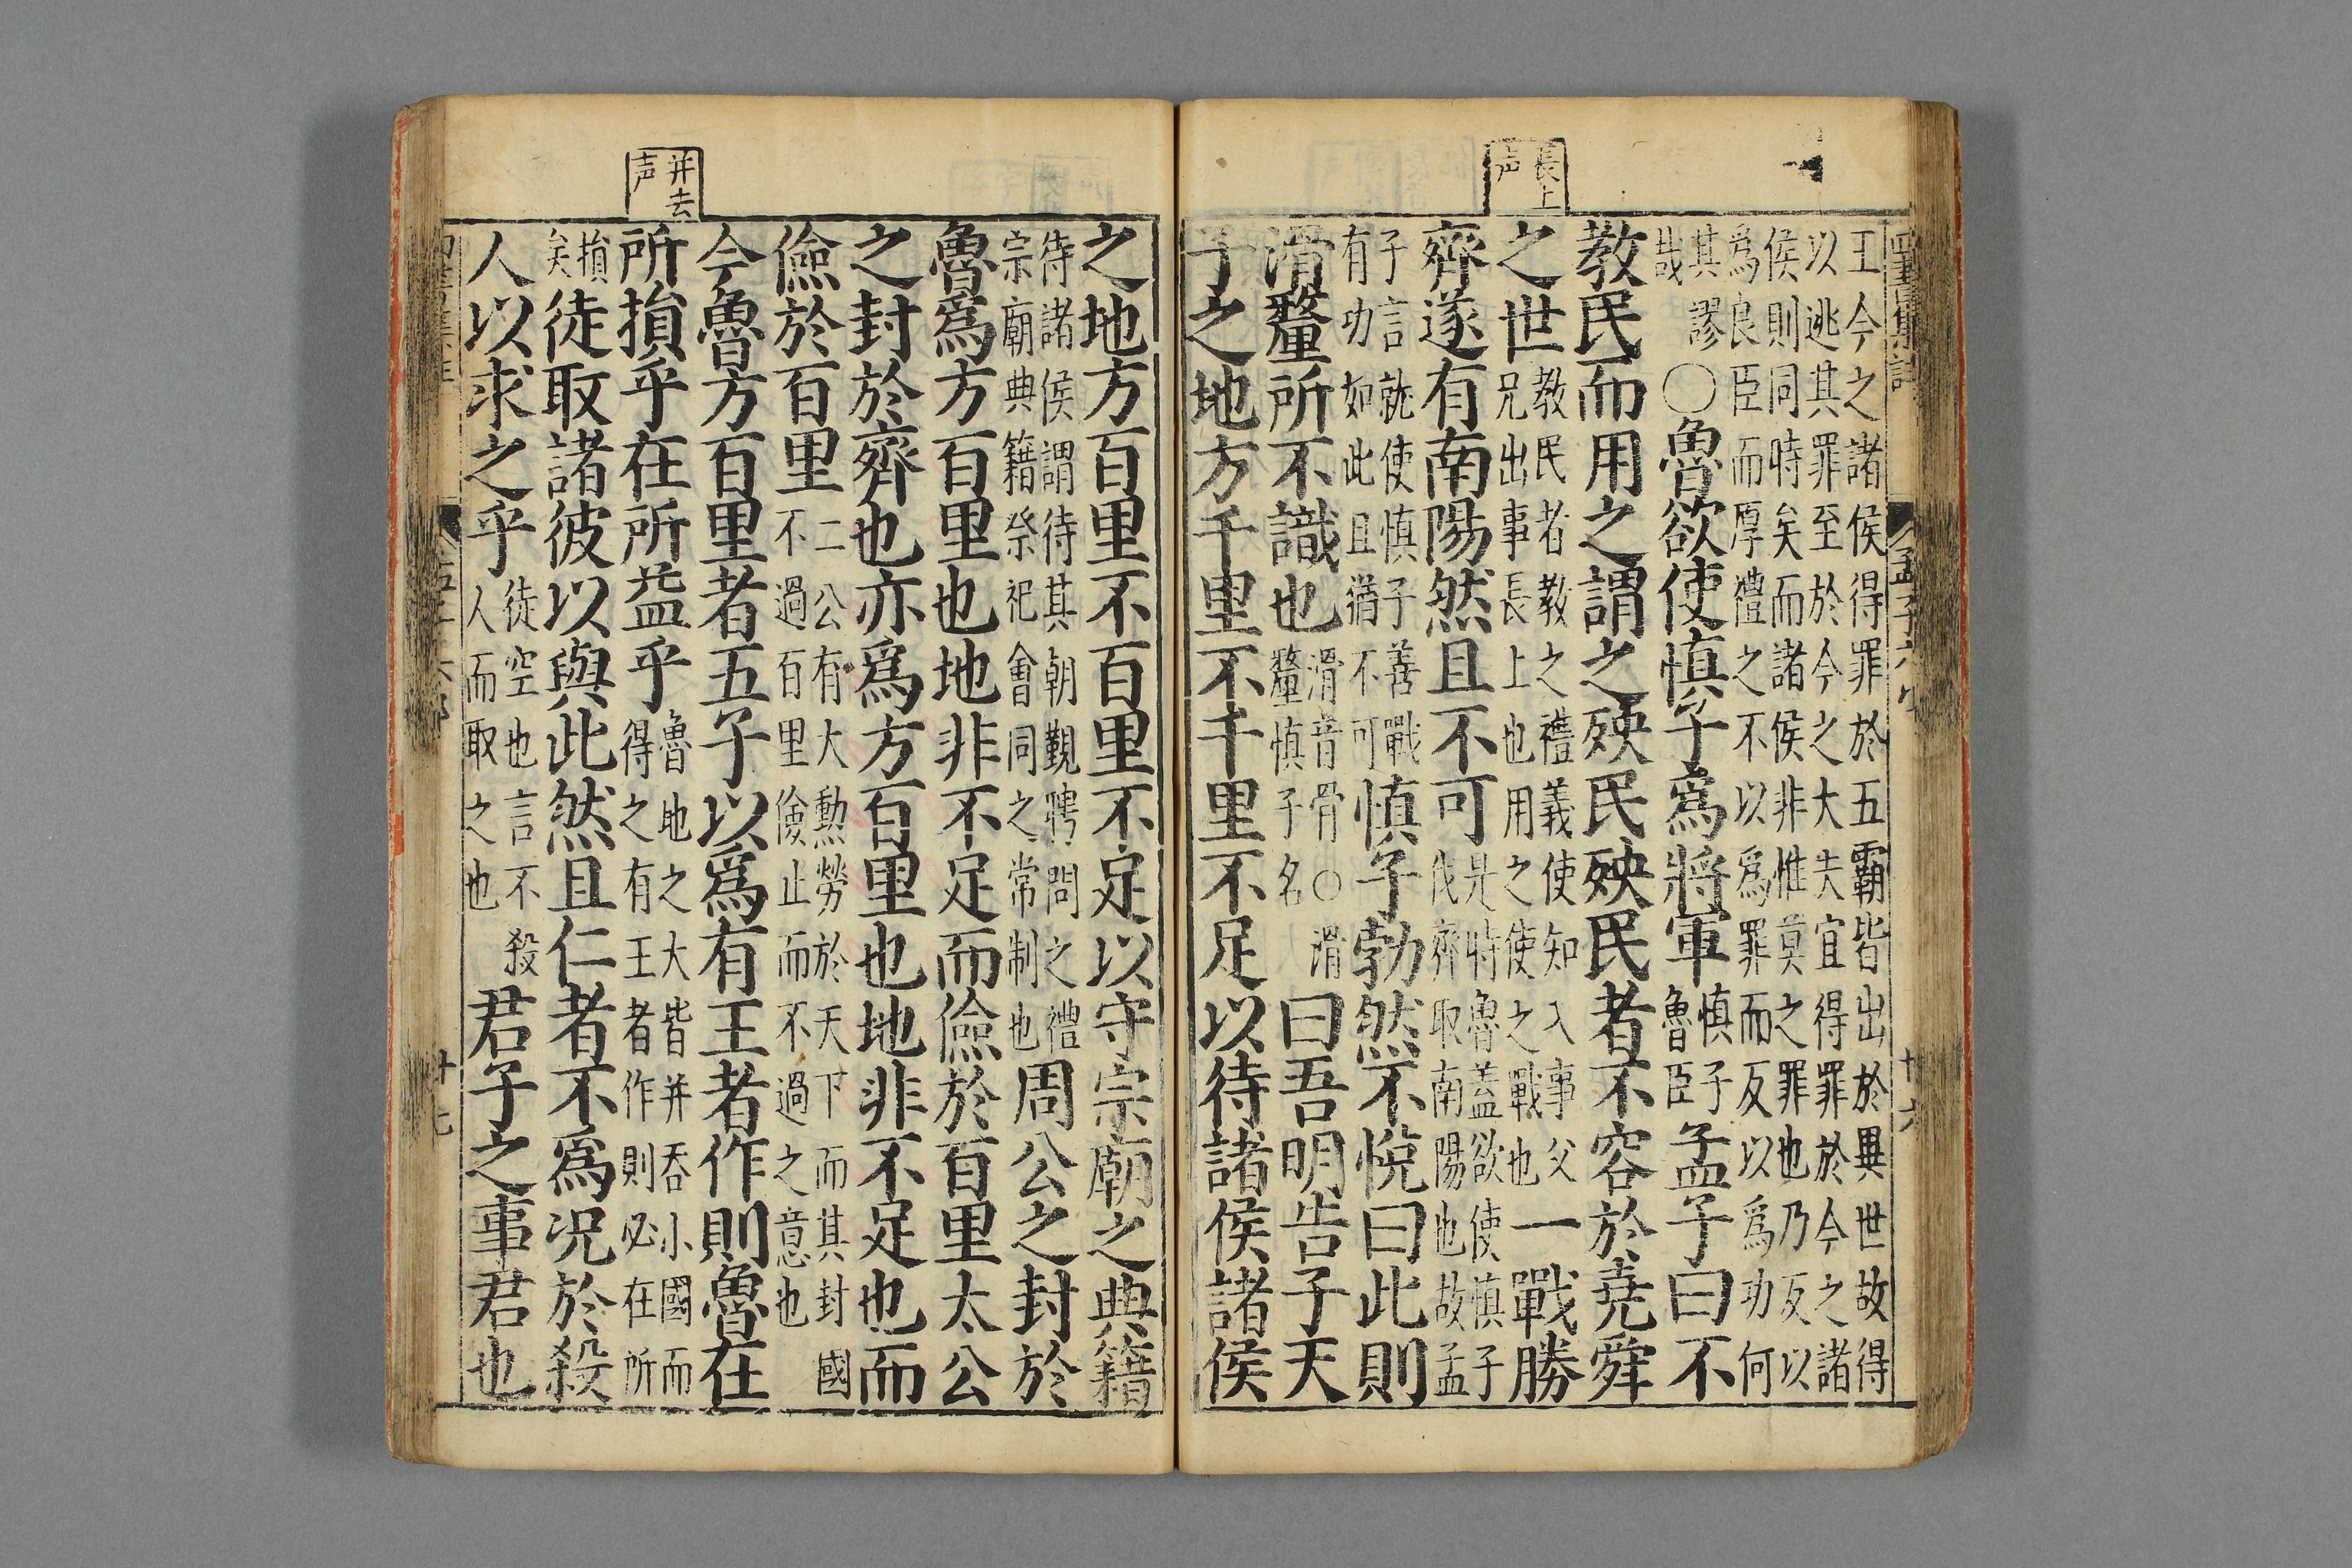 長上
声
王今之諸侯得罪於五霸皆出於異世故得
以逃其罪至於今之大夫宜得罪於今之諸
侯則同時矣而諸侯非惟莫之罪也乃反以
爲良臣而厚禮之不以爲罪而反以爲功何
其謬哉○魯欲使慎子爲將軍慎子魯臣孟子曰不
教民而用之謂之殃民殃民者不容於堯舜
之世教民者教之禮義使知入事父兄出事長上也用之使之戰也一戰勝
齊遂有南陽然且不可是時魯蓋欲使慎子伐齊取南陽也故孟
子言就使慎子善戰有功如此且猶不可慎子勃然不悅曰此則
滑釐所不識也滑音骨○滑釐慎子名曰吾明告子天
子之地方千里不千里不足以待諸侯諸侯
并去
声
之地方百里不百里不足以守宗廟之典籍
待諸侯謂待其朝覲聘問之禮宗廟典籍祭祀會同之常制也周公之封於
魯爲方百里也地非不足而儉於百里太公
之封於齊也亦爲方百里也地非不足也而
儉於百里二公有大勳勞於天下而其封國不過百里儉止而不過之意也
今魯方百里者五子以爲有王者作則魯在
所損乎在所益乎魯地之大皆并吞小國而得之有王者作則必在所
損矣徒取諸彼以與此然且仁者不爲况於殺
人以求之乎徒空也言不殺人而取之也君子之事君也